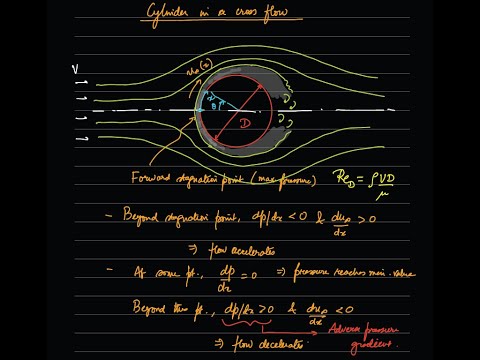 Cylinder in a cross flow
V
u∞(x)
x
θ
D
Forward stagnation point (max pressure)
Re_D = ρVD/μ
- Beyond stagnation point, dp/dx < 0 & du∞/dx > 0
⇒ flow accelerates
- At some pt., dp/dx = 0 ⇒ pressure reaches min. value
Beyond this pt., dp/dx > 0 & du∞/dx < 0
Adverse pressure gradient.
⇒ flow decelerates.